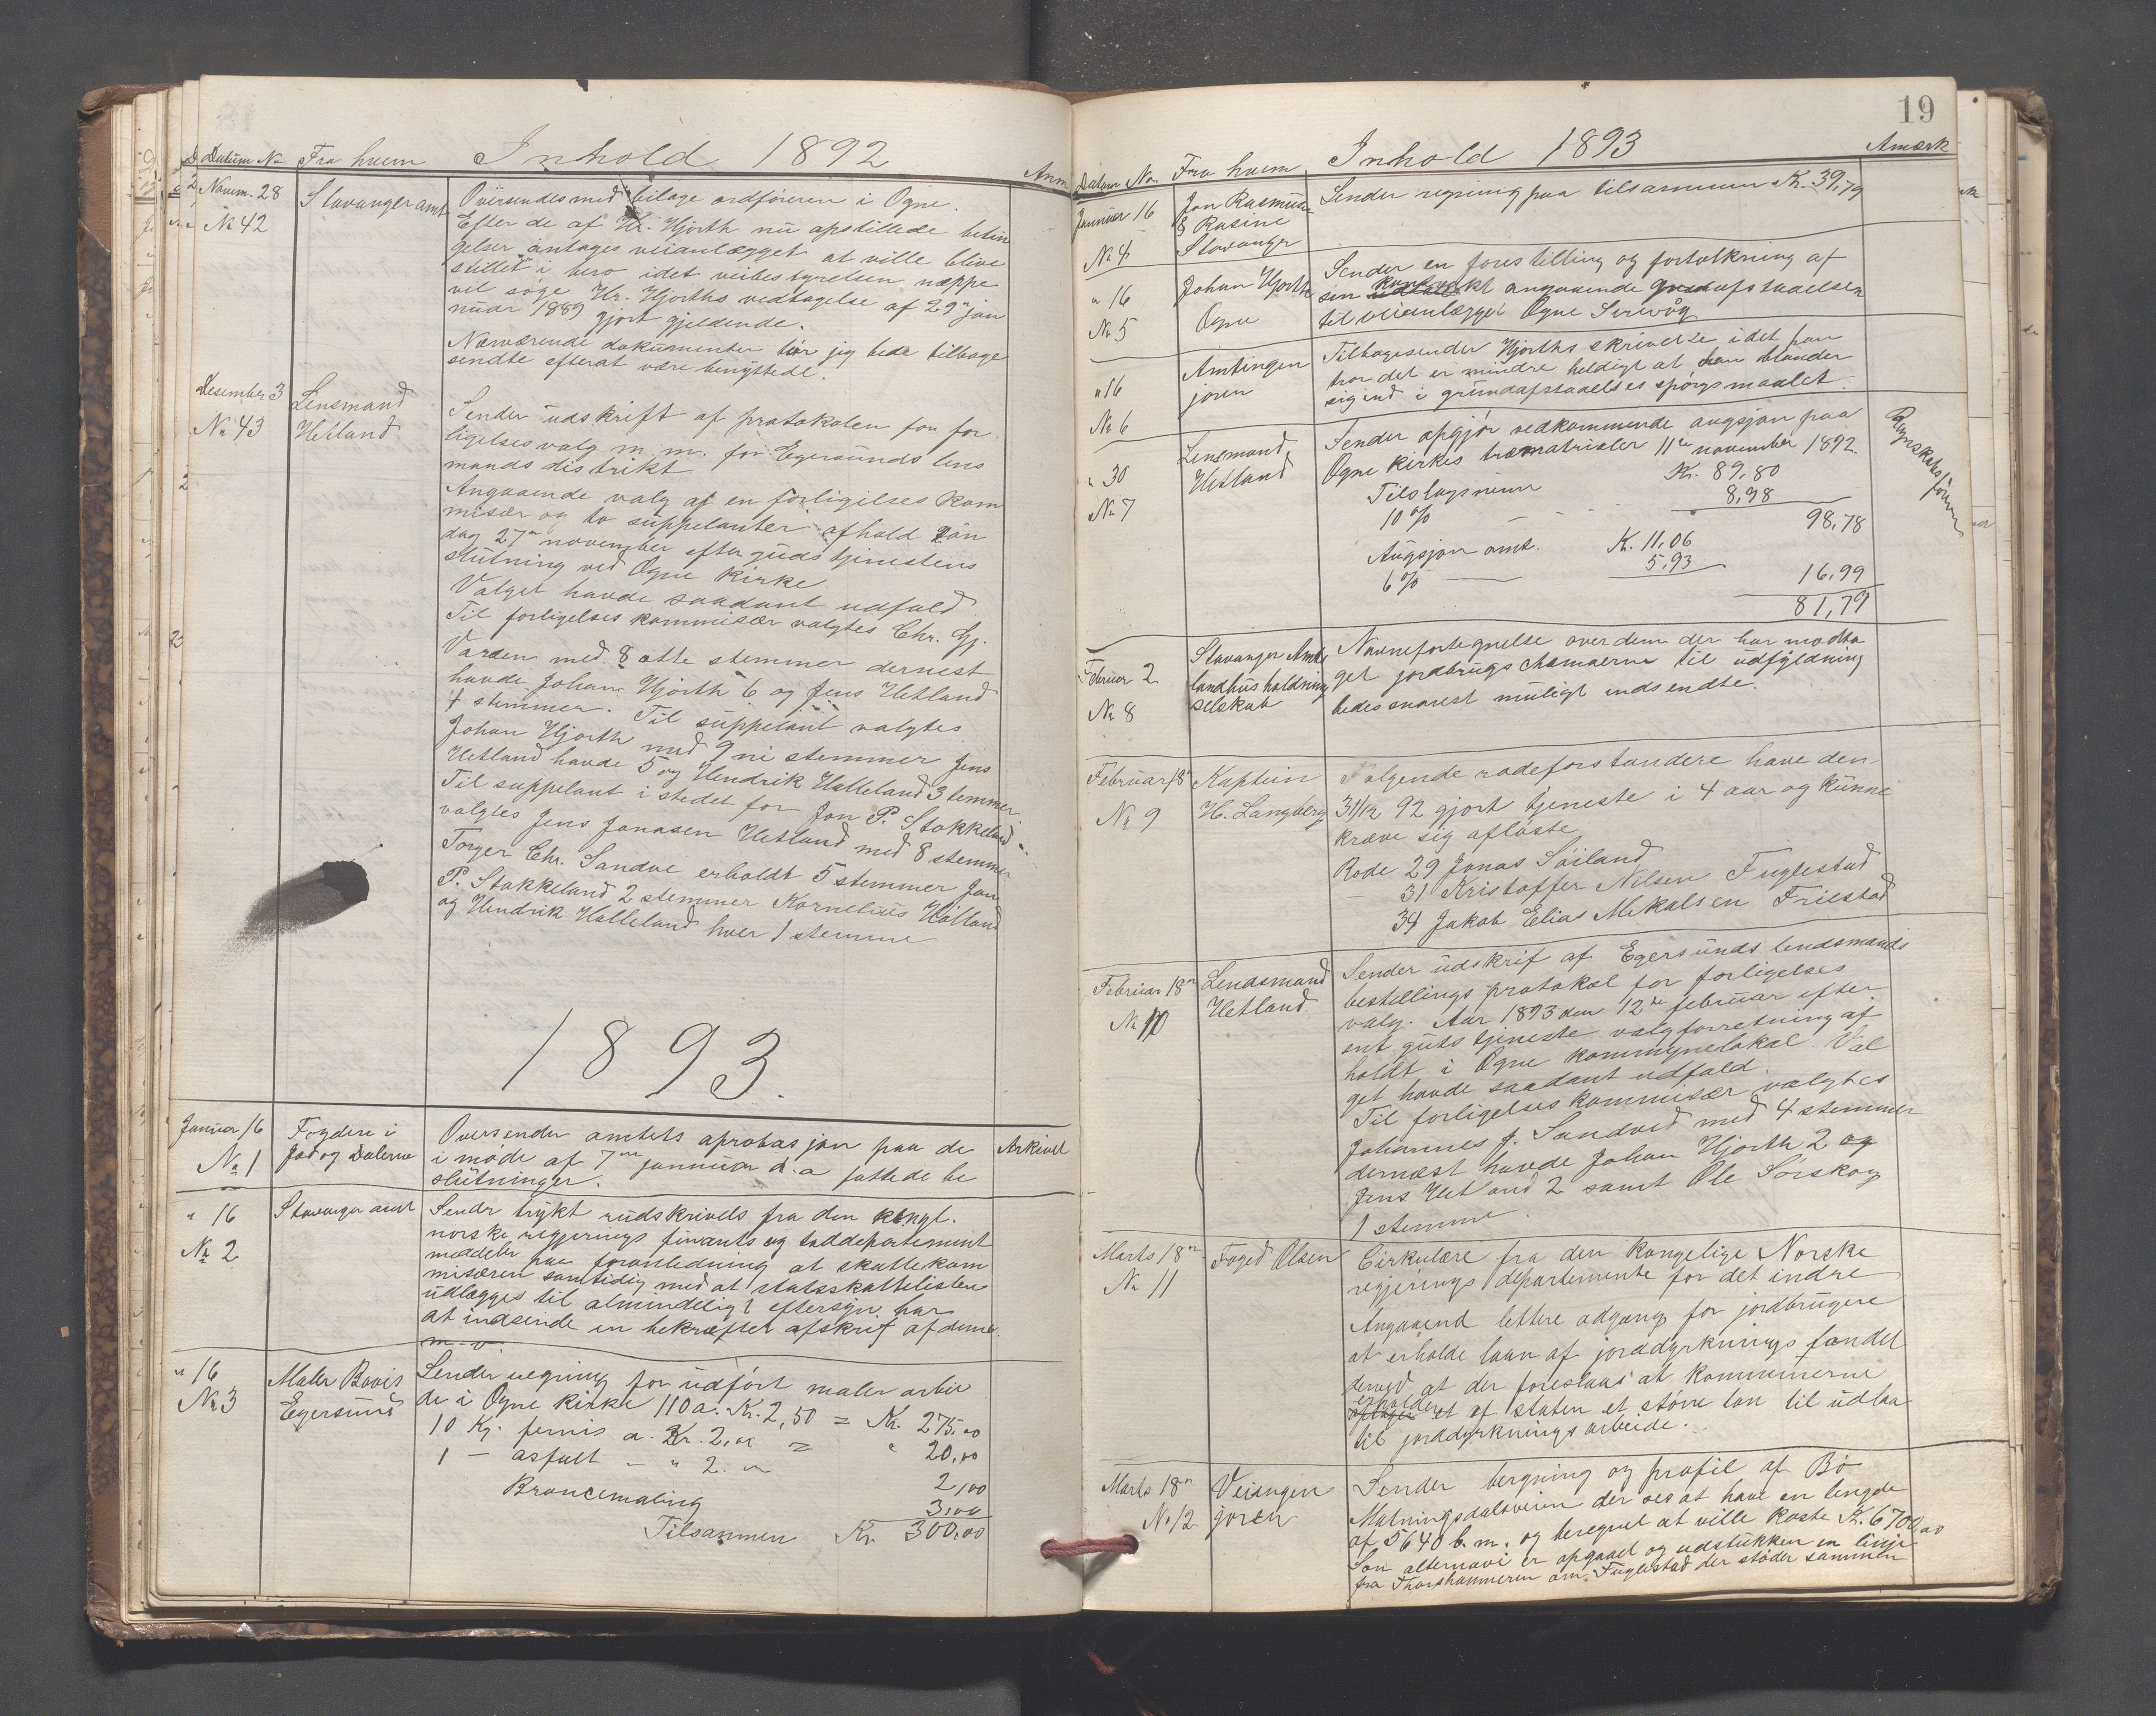 Datum No Fra hvem Inhold 1892 Anm
Novem. 28 Stavanger amt Oversendes med bilage ordföreren i Ogne.
No 42 Efter de af Hr. Hjorth nu opstillede betin
gelser antages veianlægget at ville blive
stillet i bero idet veibestyrelsen næppe
vil søge Hr. Hjorths vedtagelse af 29n jan
nuar 1889 gjort gjeldende.
Nærværende dokumenter tör jeg bede tilbage
sendte efterat være benyttede.
Desember 3 Lensmand Sender udskrift af protokolen for for
No 43 Hetland ligelsesvalg m.m. for Egersunds lens
mands distrikt
Angaaende valg af en forligelses kom
misær og to suppelanter afhold sön
dag 27n november efter gudstjenestens
slutning ved Ogne kirke.
Valget havde saadant udfald
Til forligelses kommisær valgtes Chr. Gj.
Varden med 8 otte stemmer dernest
havde Johan Hjorth 6 og Jens Hetland
4 stemmer. Til suppelant valgtes
Johan Hjorth med 9 ni stemmer Jens
Hetland havde 5 og Hendrik Halleland 3 temmer
Til suppelant i stedet for Jon P. Stokkeland
valgtes Jens Jonasen Hetland med 8 stemmer
Torger Chr. Sandve erholdt 5 stemmer Jon
P. Stokkeland 2 stemmer Kornelius Hölland
og Hendrik Halleland hver 1 stemme
1893.
Januar 16 Fogdere i Oversender amtets aprobasjon paa de Arkivet
No 1 Jad og Dalerne i möde af 7de januar d.a fattede be
slutninger.
" 16 Stavanger amt Sendr trykt rudskrivels fra den kongl.
No 2 norske regjerings finants og tolddepartement
meddeler paa foranledning at skattekom
misæren samtidig med at statsskattelisten
udlægges til almindeligt eftersyn har
at indsende en bekræftet afskrif af denne
m. v.
" 16 Maler Bovis Sender regning for udfört maler arbei
No 3 Egersund de i Ogne kirke 110 a. Kr. 2,50 = Kr. 275,00
10 Kg. fernis a. Kr. 2,00 = " 20,00
1 — asfalt — " 2. 00 2,00
Broncemaling 3,00
Tilsammen Kr. 300,00
19
Datum No. Fra hvem Inhold 1893 Amærk
Januar 16 Jon Rasmusen Sender regning paa tilsammen Kr. 39,79
& Rasine
No 4 Stavanger
" 16 Johan Hjorth Sender en forestilling og fortolkning af
sin kontrakt angaaende grundafstaaelsen
No 5 Ogne til veianlægget Ogne Sirevåg
" 16 Amtingen Tilbagesender Hjorths skrivelse idet han
No 6 jören tror det er mindre heldigt at han blander
sig ind i grundafstaaelses spörgsmaalet.
" 30 Lensmand Sender opgjör vedkommende augsjon paa Regnskabsfören
No 7 Hetland Ogne kirkes træmatrialer 11te november 1892.
Tilslagsum Kr. 89,80
10 % 8,98
98,78
Augsjon omk. K. 11,06
6 % 5,93
16,99
81,79
Februar 2 Stavanger Amts Navnefortegnelse over dem der har modta
landhusholdning get jordbrugs chemaerne til udfyldning
No 8 selskab bedes snarest muligt indsendte.
Februar 18n Kaptein Følgende rodeforstandere have den
No 9 H. Langberg 31/12 92 gjort tjeneste i 4 aar og kunne
kræve sig aflöste
Rode 29 Jonas Söiland
— 31 Kristoffer Nilsen Fuglestad
34 Jakob Elias Mikalsen Friestad
Februar 18n Lendsmand Sender udskrif af Egersunds lendsmands
No 10 Hetland bestillings protokol for forligelses
valg. Aar 1893 den 12te februar efter
ent gutstjeneste valgforretning af
holdt i Ogne kommunelokal. Val
get havde saadant udfald.
Til forligelseskommisær valgtes
Johannes J. Sandved med 4 stemmer
dernæst havde Johan Hjorth 2 og
Jens Hetland 2 samt Ole Sörskog
1 stemme.
Marts 18n Foged Olsen Cirkulære fra den kongelige Norske
No 11 regjerings departemente for det indre
Angaaend lettere adgang for jordbrugere
at erholde laan af jorddyrknings fondet
derved at der foreslaas at kommunerne
erholder et af staten et större lan til udlaa
til jorddyrkningsarbeide.
Marts 18n Veiingen Sender bergning og profil af Bö
No 12 jören Matningsdalsveien der ses at have en lengde
af 5640 b.m. og beregnet at ville koste Kr. 6700,00
Son alternavi er opgaaet og udstukken en linje
fra Thorshammeren om Fuglestad der stöder sammen